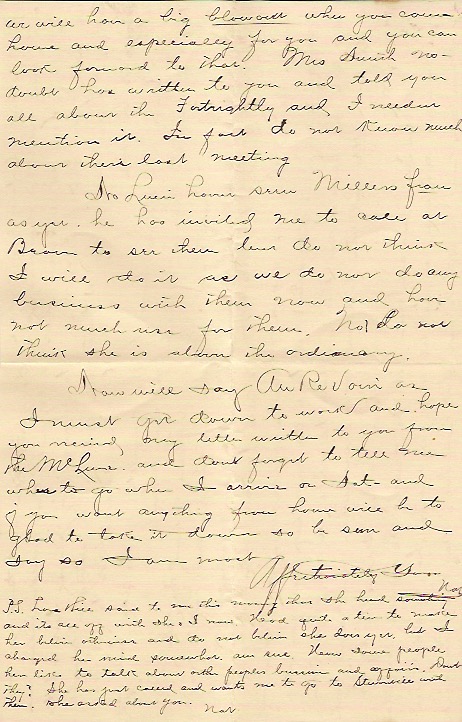 we will have a big blowout when you come
home and especially for you and you can
look forward to that. Mrs no-
doubt has written to you and told you
all about the Fortnightly and I needn't
mention it. In fact do not know much
about their last meeting
No have seen Millers frau
as yet. he has invited me to call at
Brown to see them but do not think
I will do it as we do not do any
business with them now and have
not much use for them. No! do not
think she is above the ordinary.
Now will say Au Revoir as
I must get down to work and hope
you received my letter written to you from
the and dont forget to tell me
where to go when I arrive or date and
if you want anything from home will be to
glad to take it down so be sure and
say so I am most
Affectionately Yours
Nat.
P.S. said to me this morning that she heard
and its all off with she & now. Had quite a time to make
her believe otherwise and do not believe she does yet, but I
changed her mind somewhat am sure. How some people
here like to talk about other peoples business and affairs. Dont
they? She has just called and wants me to go to with
them. She asked about you.
Nat.